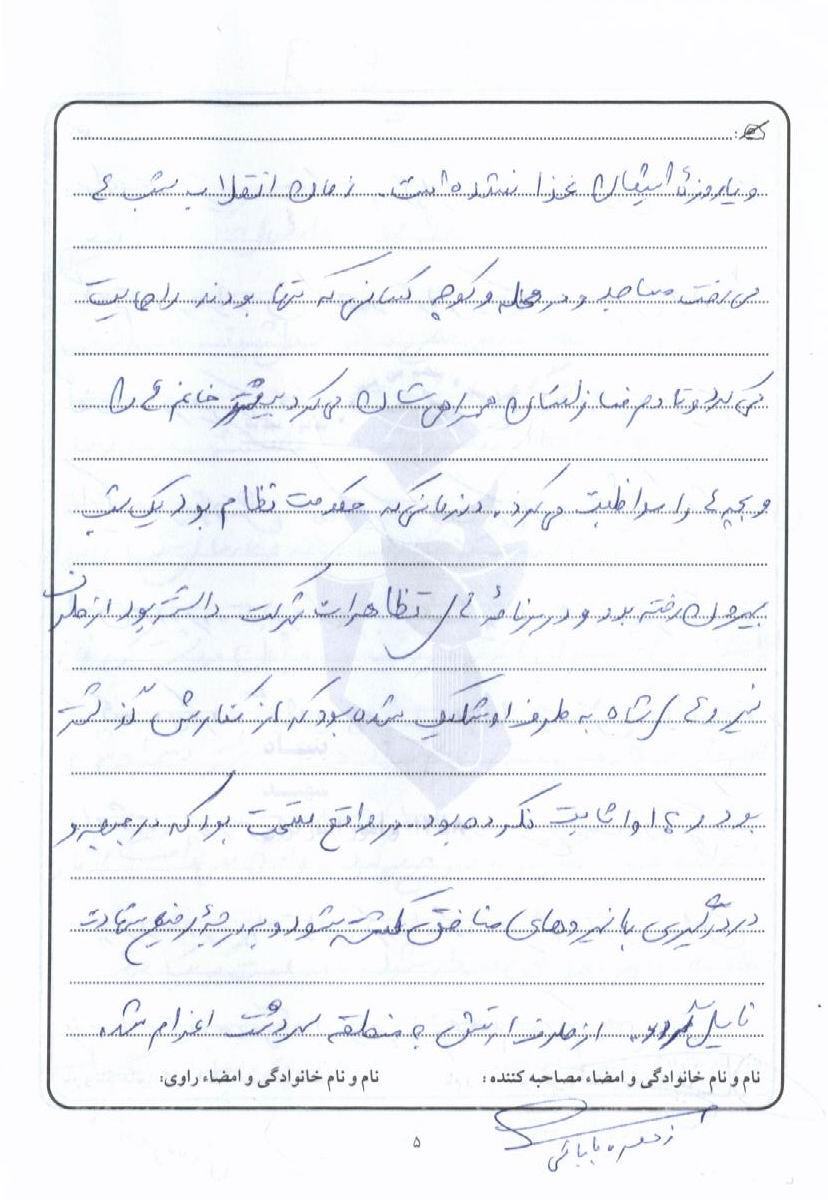 و یا روزهٔ ایشان غذا نشده است. زمان انقلاب شب ع
می رفت مساجد و در محله و کوچه کسانی که تنها بودند را حمایت
می کرد و تا دم منازلشان همراهی شان می کرد بیشتر خانم ع ن
و بچه ع را مواظبت می کرد. در زمانی که حکومت نظام بود یک شب
بیرون رفته بود و در برنامهٔ تظاهرات شرکت داشته بود از طرف
نیروع شاه به طرف او شلیک شده بود که از کنارش گذشته
بود و به او اصابت نکرده بود. در واقع می خواست بود که در جبهه و
در درگیری با نیروهای منافق کشته شود و به درجهٔ رفیع شهادت
نایل آید. از طرف ارتش به منطقه سردشت اعزام شد.
نام و نام خانوادگی و امضاء مصاحبه کننده : نام و نام خانوادگی و امضاء راوی:
بابائی
۵